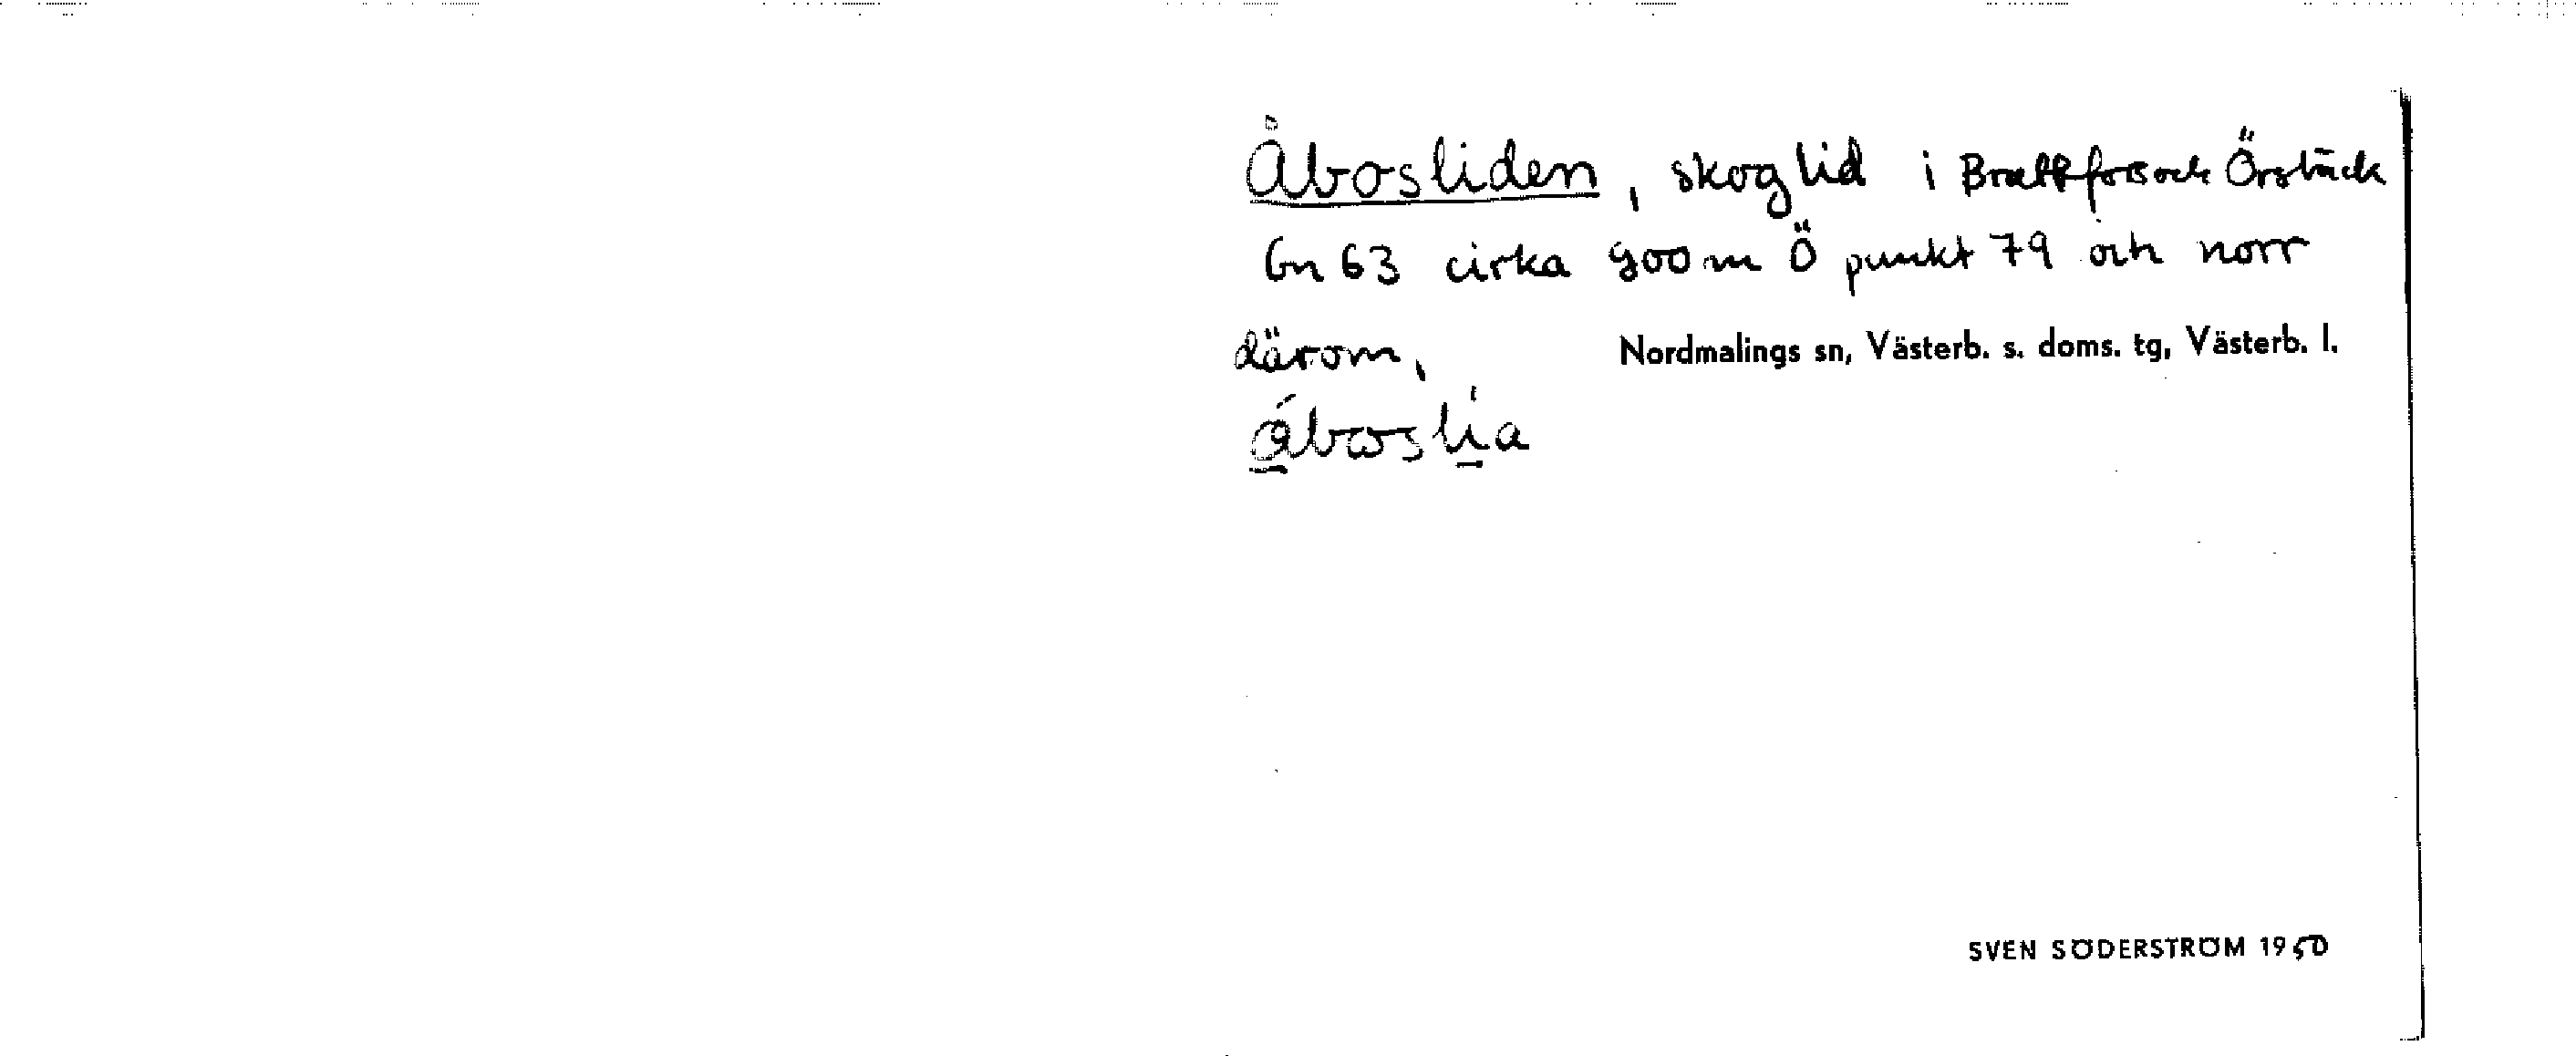 Åbosliden, skoglid i Brattfors och Örsbäck
Gn 63 cirka 900 m Ö punkt 79 och norr
därom,
Nordmalings sn, Västerb. s. doms. tg, Västerb. l.
SVEN SÖDERSTRÖM 1950